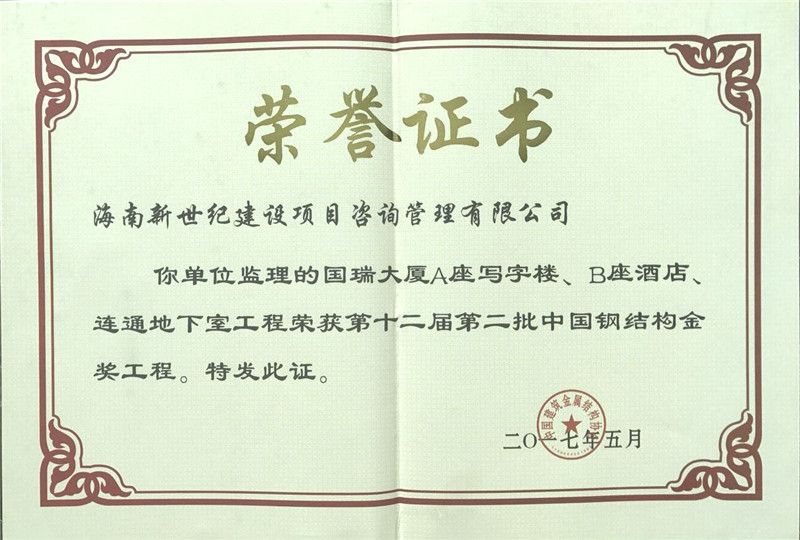 荣誉证书
海南新世纪建设项目咨询管理有限公司
你单位监理的国瑞大厦A座写字楼、B座酒店、
连通地下室工程荣获第十二届第二批中国钢结构金
奖工程。特发此证。
中国建筑金属结构协会
二〇一七年五月